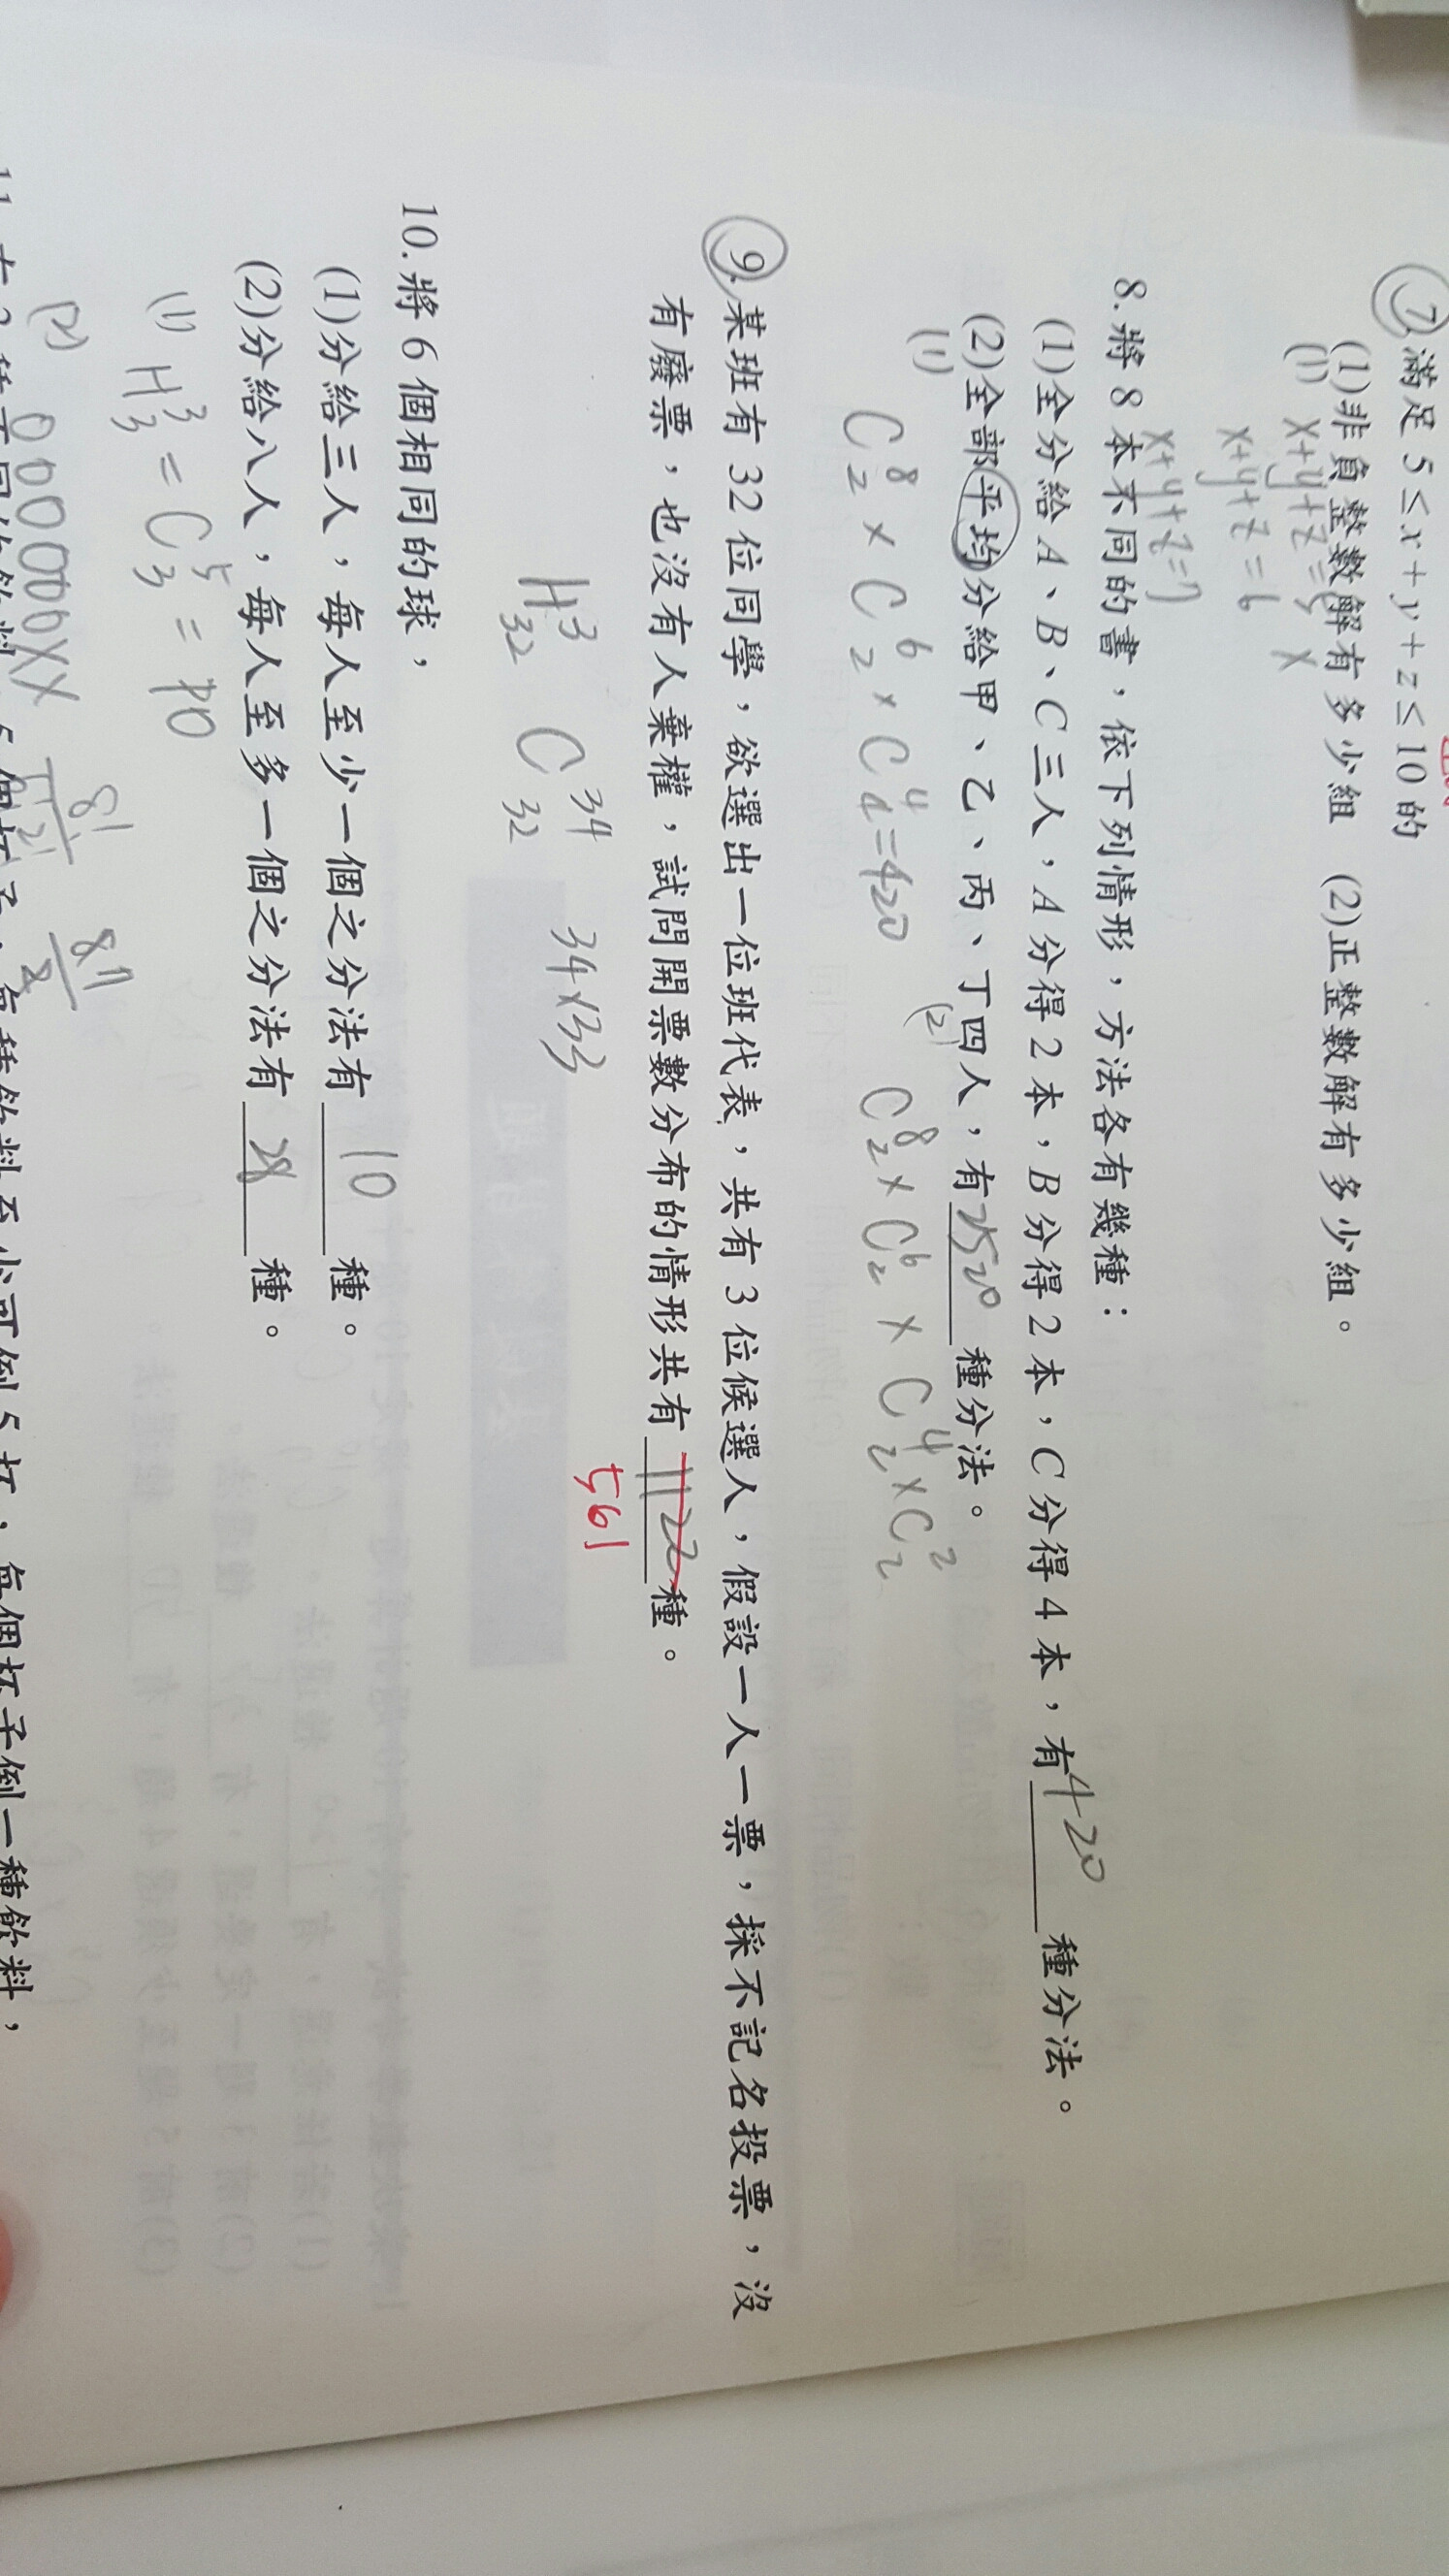 7. 滿足 5 ≤ x + y + z ≤ 10 的
(1)非負整數解有多少組 (2)正整數解有多少組。
(1) x+y+z=5
x+y+z=6
x+y+z=7
8. 將 8 本不同的書，依下列情形，方法各有幾種：
(1)全分給 A、B、C 三人，A 分得 2 本，B 分得 2 本，C 分得 4 本，有 420 種分法。
(2)全部平均分給甲、乙、丙、丁四人，有 2520 種分法。
(1) C⁸₂ × C⁶₂ × C⁴₄ = 420 (2) C⁸₂ × C⁶₂ × C⁴₂ × C²₂
9. 某班有 32 位同學，欲選出一位班代表，共有 3 位候選人，假設一人一票，採不記名投票，沒
有廢票，也沒有人棄權，試問開票數分布的情形共有 1122 種。
561
H³₃₂ C³⁴₃₂ 34×33
10. 將 6 個相同的球，
(1)分給三人，每人至少一個之分法有 10 種。
(2)分給八人，每人至多一個之分法有 28 種。
(1) H³₃ = C⁵₃ = 10
(2) 000000XX